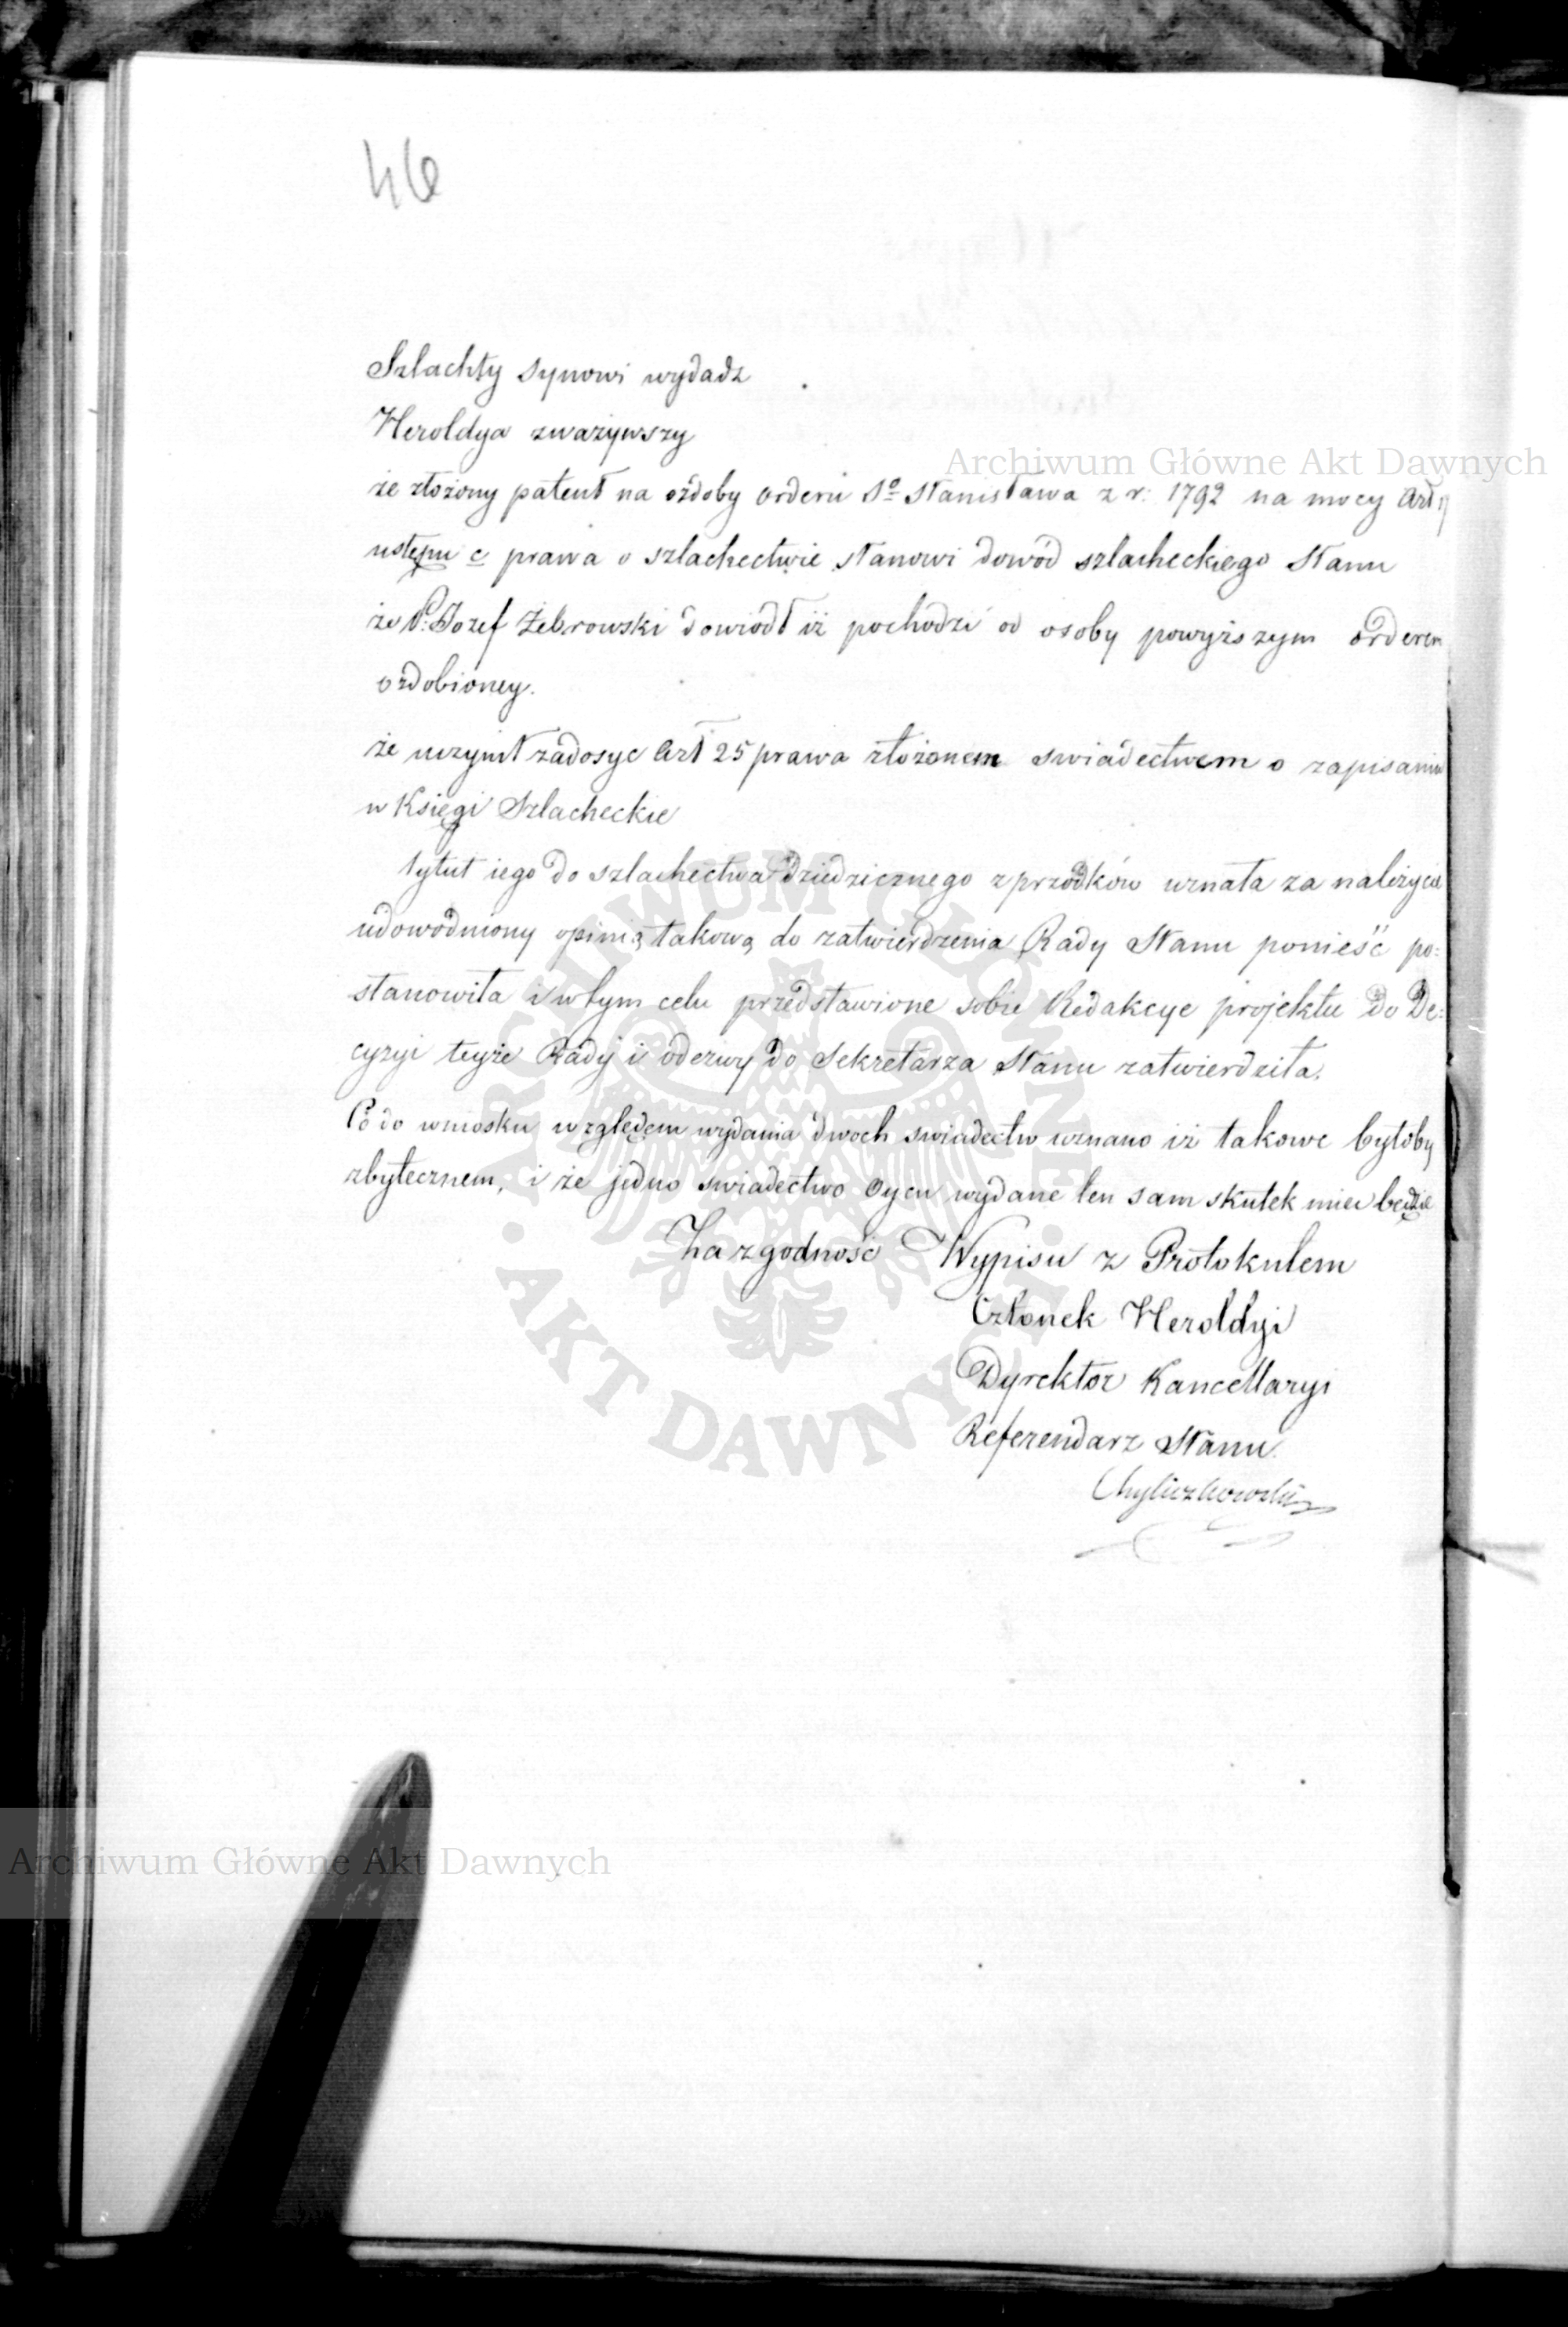 46
Szlachty synowi wydadz
Heroldya zważywszy
Archiwum Główne Akt Dawnych
że złożony patent na ozdoby orderu Sº Stanisława z r: 1792 na mocy Art
ustępu c prawa o szlachectwie stanowi dowód szlacheckiego Stanu
że P. Jozef Żebrowski dowiódł iż pochodzi od osoby powyższym orderem
ozdobioney.
że uczynił zadosyc Art 25 prawa złożonem swiadectwem o zapisaniu
w Księgi Szlacheckie
tytuł iego do szlachectwa dziedzicznego z przodków uznała za należycie
udowodniony opinią takową do zatwierdzenia Rady Stanu ponieść po=
stanowiła i w tym celu przedstawione sobie Redakcye projektu do De=
cyzyi teyże Rady i odezwy do Sekretarza Stanu zatwierdziła.
Co do wniosku względem wydania dwoch swiadectw uznano iż takowe byłoby
zbytecznem, i że jedno swiadectwo Oycu wydane ten sam skutek miec będzie
Za zgodność Wypisu z Protokułem
Członek Heroldyi
Dyrektor Kancellaryi
Referendarz Stanu.
Chyliczkowski
ARCHIWUM GŁÓWNE
· AKT DAWNYCH ·
Archiwum Główne Akt Dawnych